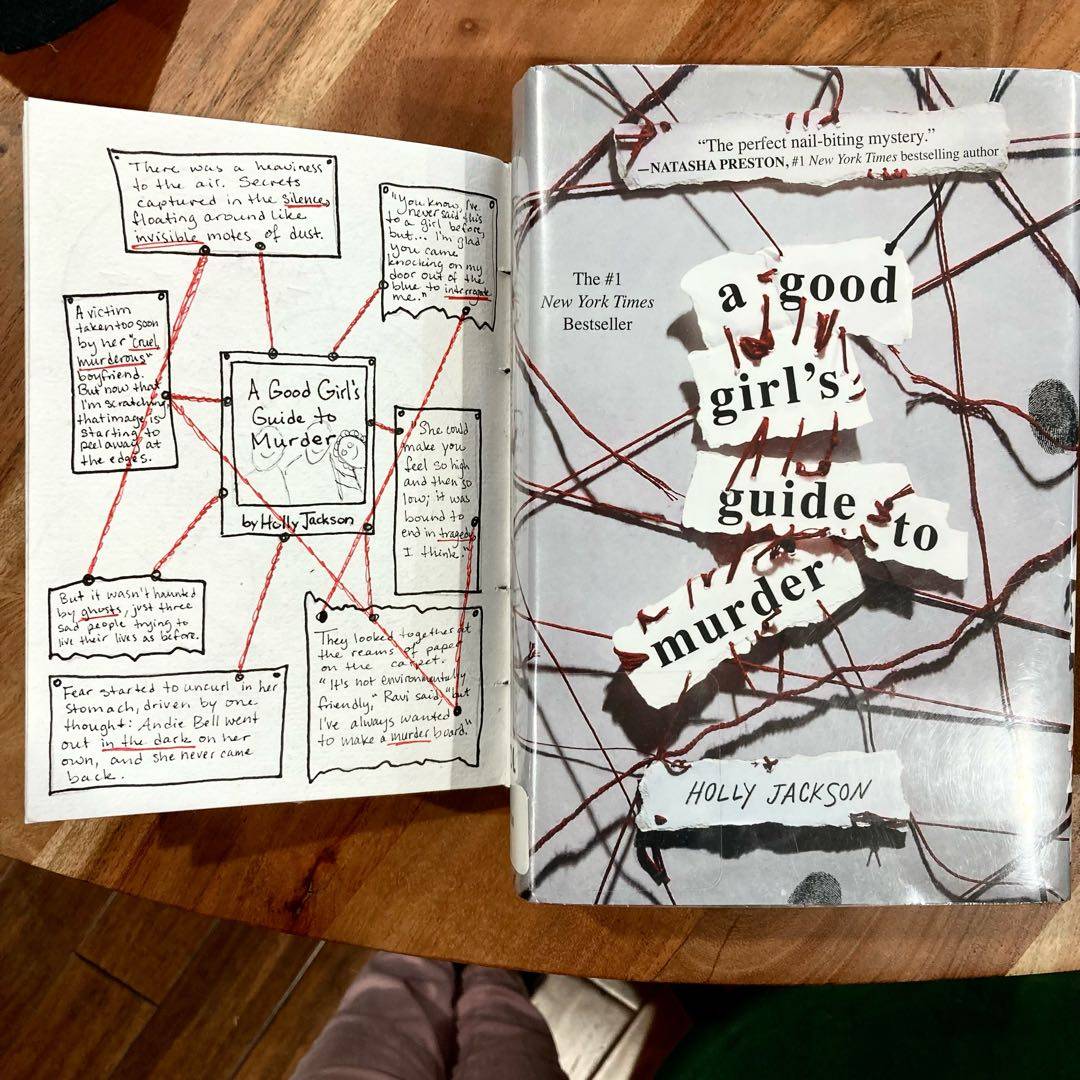 There was a heaviness
to the air. Secrets
captured in the silence,
floating around like
invisible motes of dust.
"You know, I've
never said this
to a girl before,
but... I'm glad
you came
knocking on my
door out of the
blue to interrogate
me."
A victim
taken too soon
by her "cruel,
murderous"
boyfriend.
But now that
I'm scratching,
that image is
starting to
peel away at
the edges.
A Good Girl's
Guide to
Murder
by Holly Jackson
"She could
make you
feel so high
and then so
low; it was
bound to
end in tragedy,
I think."
But it wasn't haunted
by ghosts, just three
sad people trying to
live their lives as before.
They looked together at
the reams of paper
on the carpet.
"It's not environmentally
friendly," Ravi said, "but
I've always wanted
to make a murder board."
Fear started to uncurl in her
stomach, driven by one
thought: Andie Bell went
out in the dark on her
own, and she never came
back.
"The perfect nail-biting mystery."
—NATASHA PRESTON, #1 New York Times bestselling author
The #1
New York Times
Bestseller
a good
girl's
guide to
murder
HOLLY JACKSON